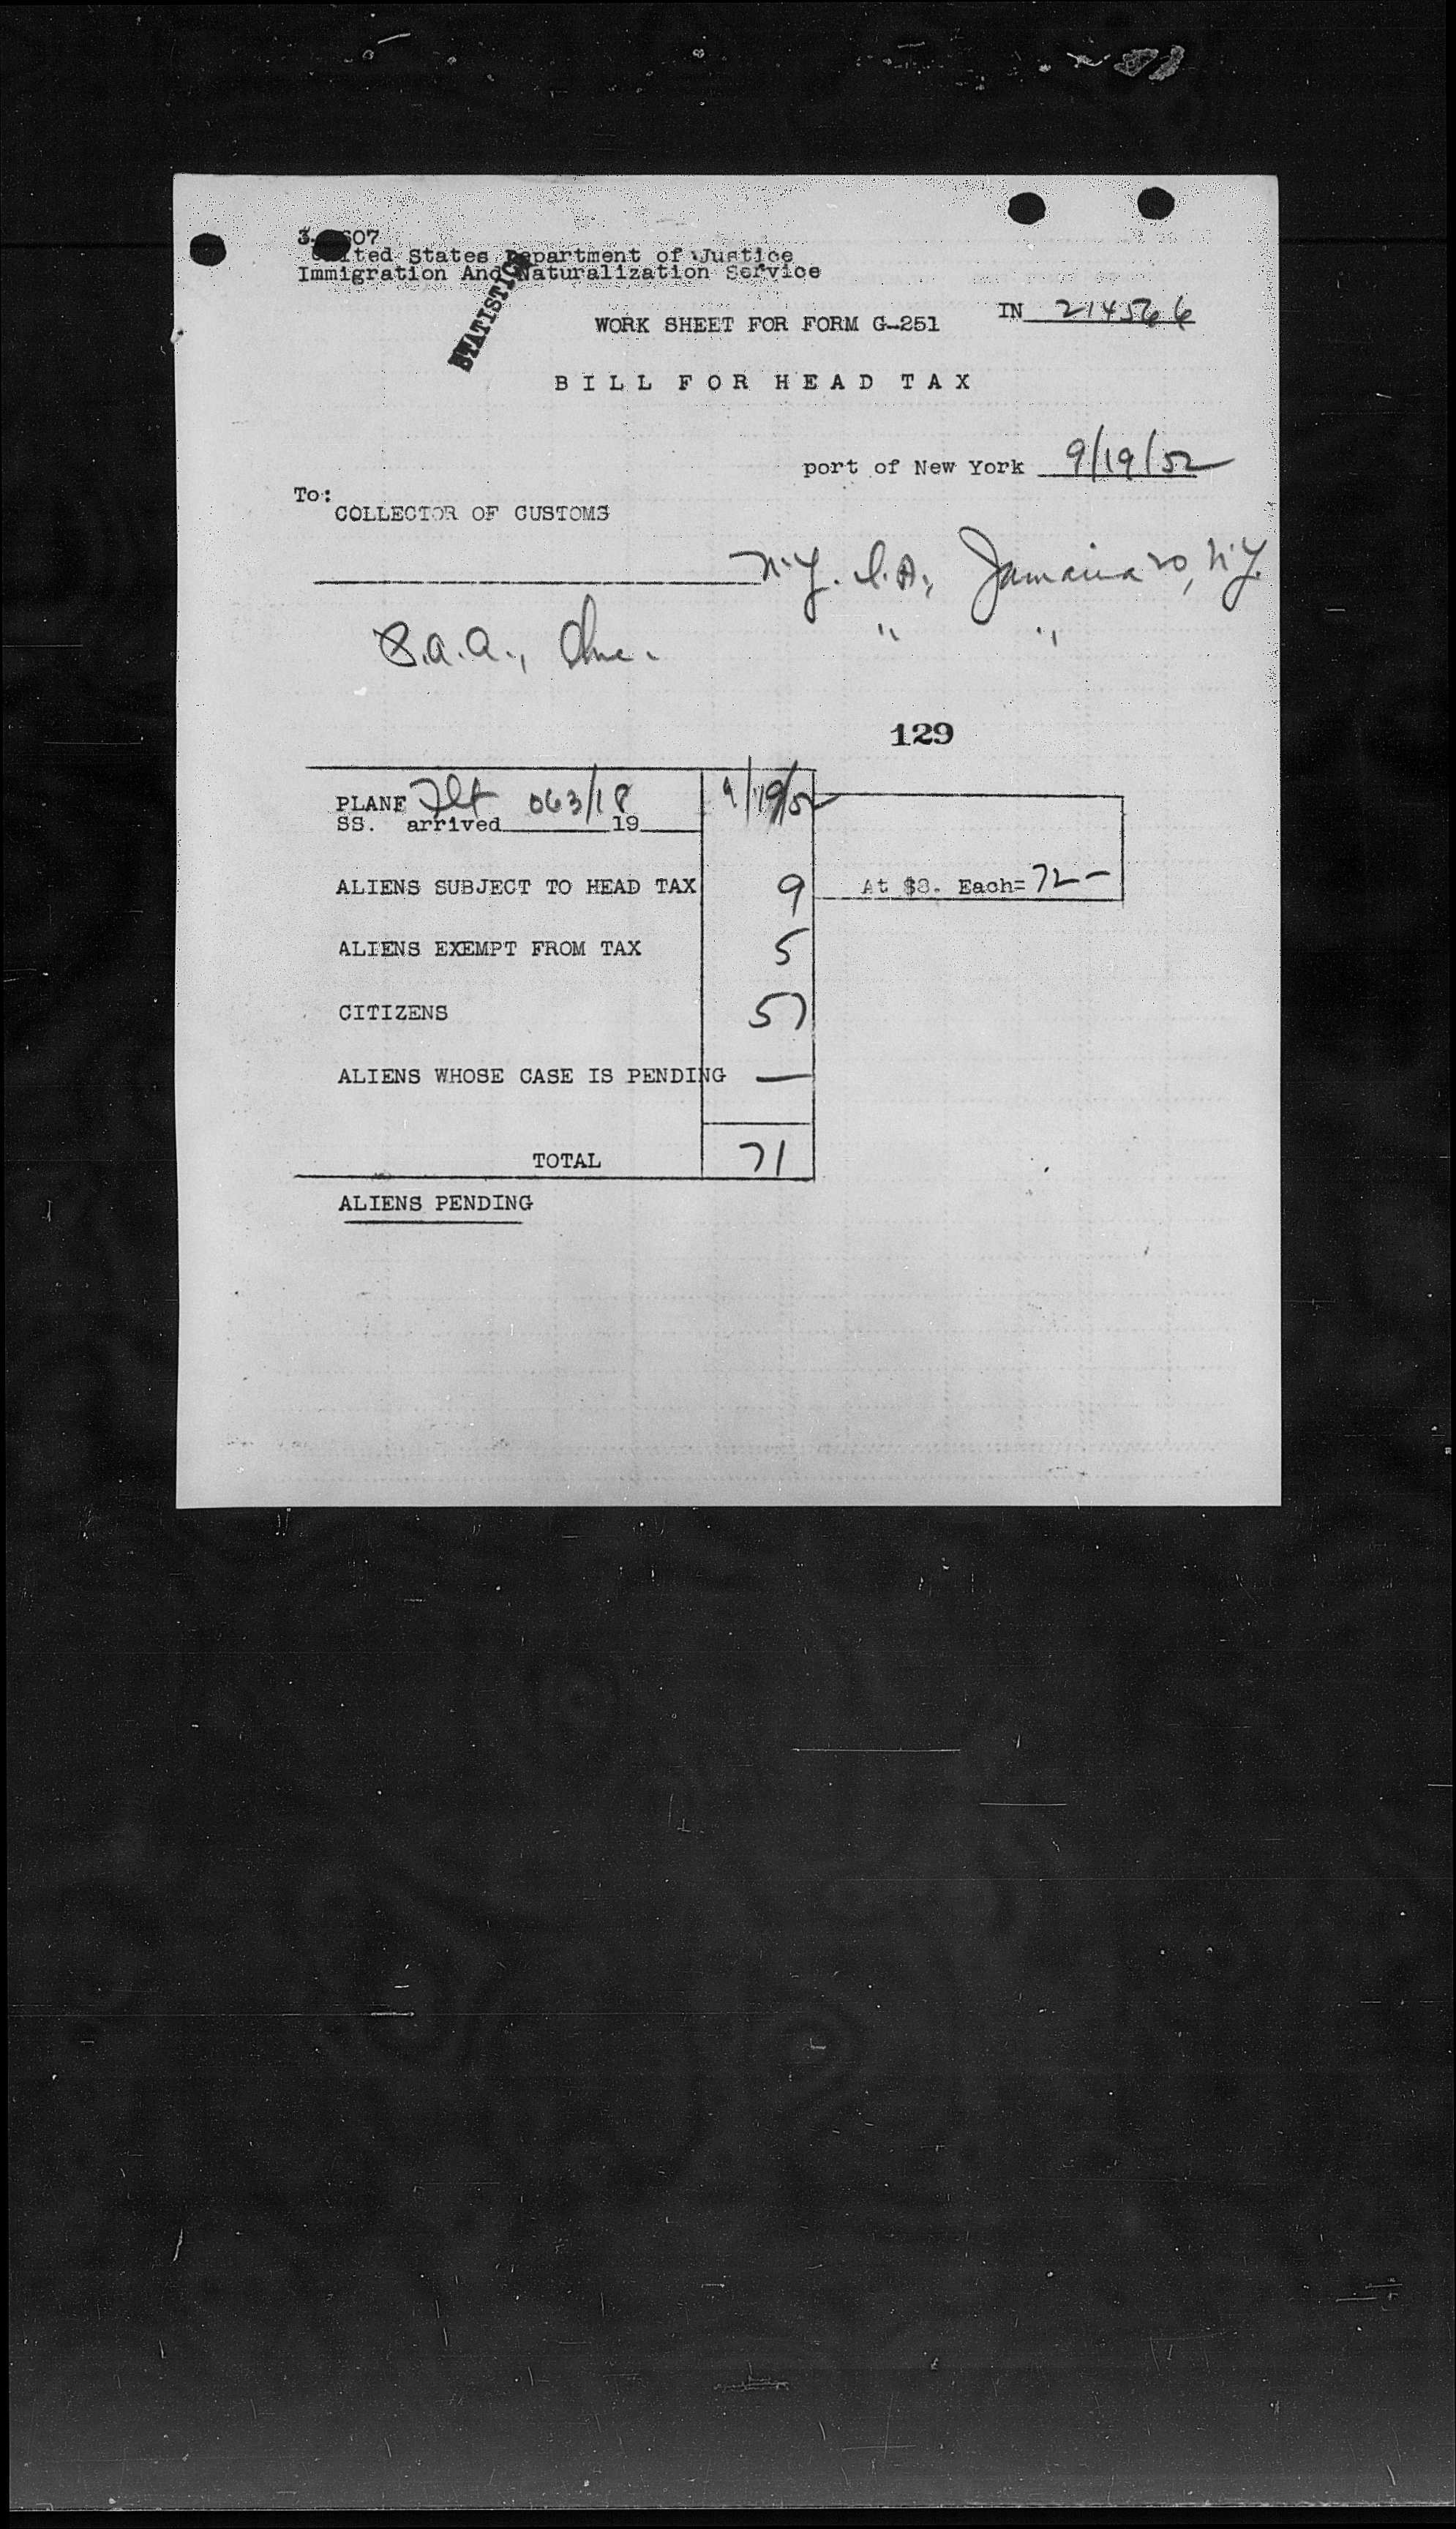 3. 607
United States Department of Justice
Immigration And Naturalization Service
STATISTICS
WORK SHEET FOR FORM G-251
IN 214566
BILL FOR HEAD TAX
port of New York 9/19/52
To:
COLLECTOR OF CUSTOMS
N.Y. I.A., Jamaica 20, N.Y.
a.a., Inc. " "
129
PLANE Flt 063/18 9/19/52
SS. arrived 19
ALIENS SUBJECT TO HEAD TAX 9 At $8. Each= 72-
ALIENS EXEMPT FROM TAX 5
CITIZENS 57
ALIENS WHOSE CASE IS PENDING —
TOTAL 71
ALIENS PENDING